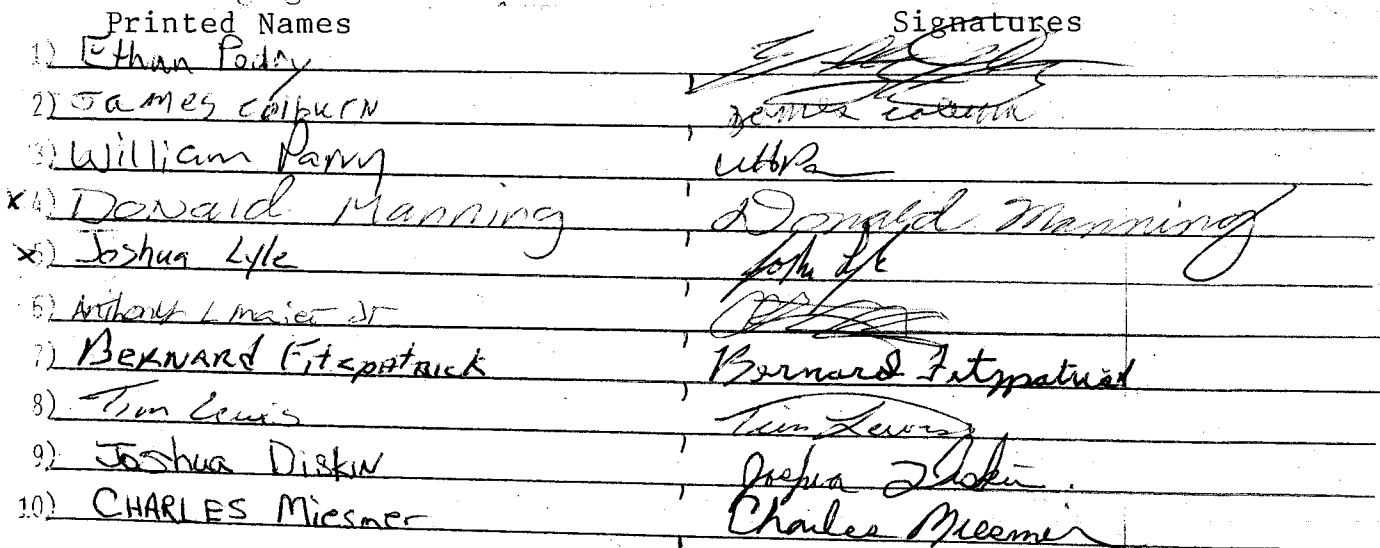 Printed Names Signatures
1) Ethan
2) James Colburn James Colburn
3) William Parry
x 4) Donald Manning Donald Manning
x 5) Joshua Lyle Joshu Lyle
6) Anthony L maier Jr
7) BERNARd FitzpAtRick Bernard Fitzpatrick
8) Tim Lewis Tim Lewis
9) Joshua Diskin Joshua Diskin
10) CHARLES Miesner Charles Miesner